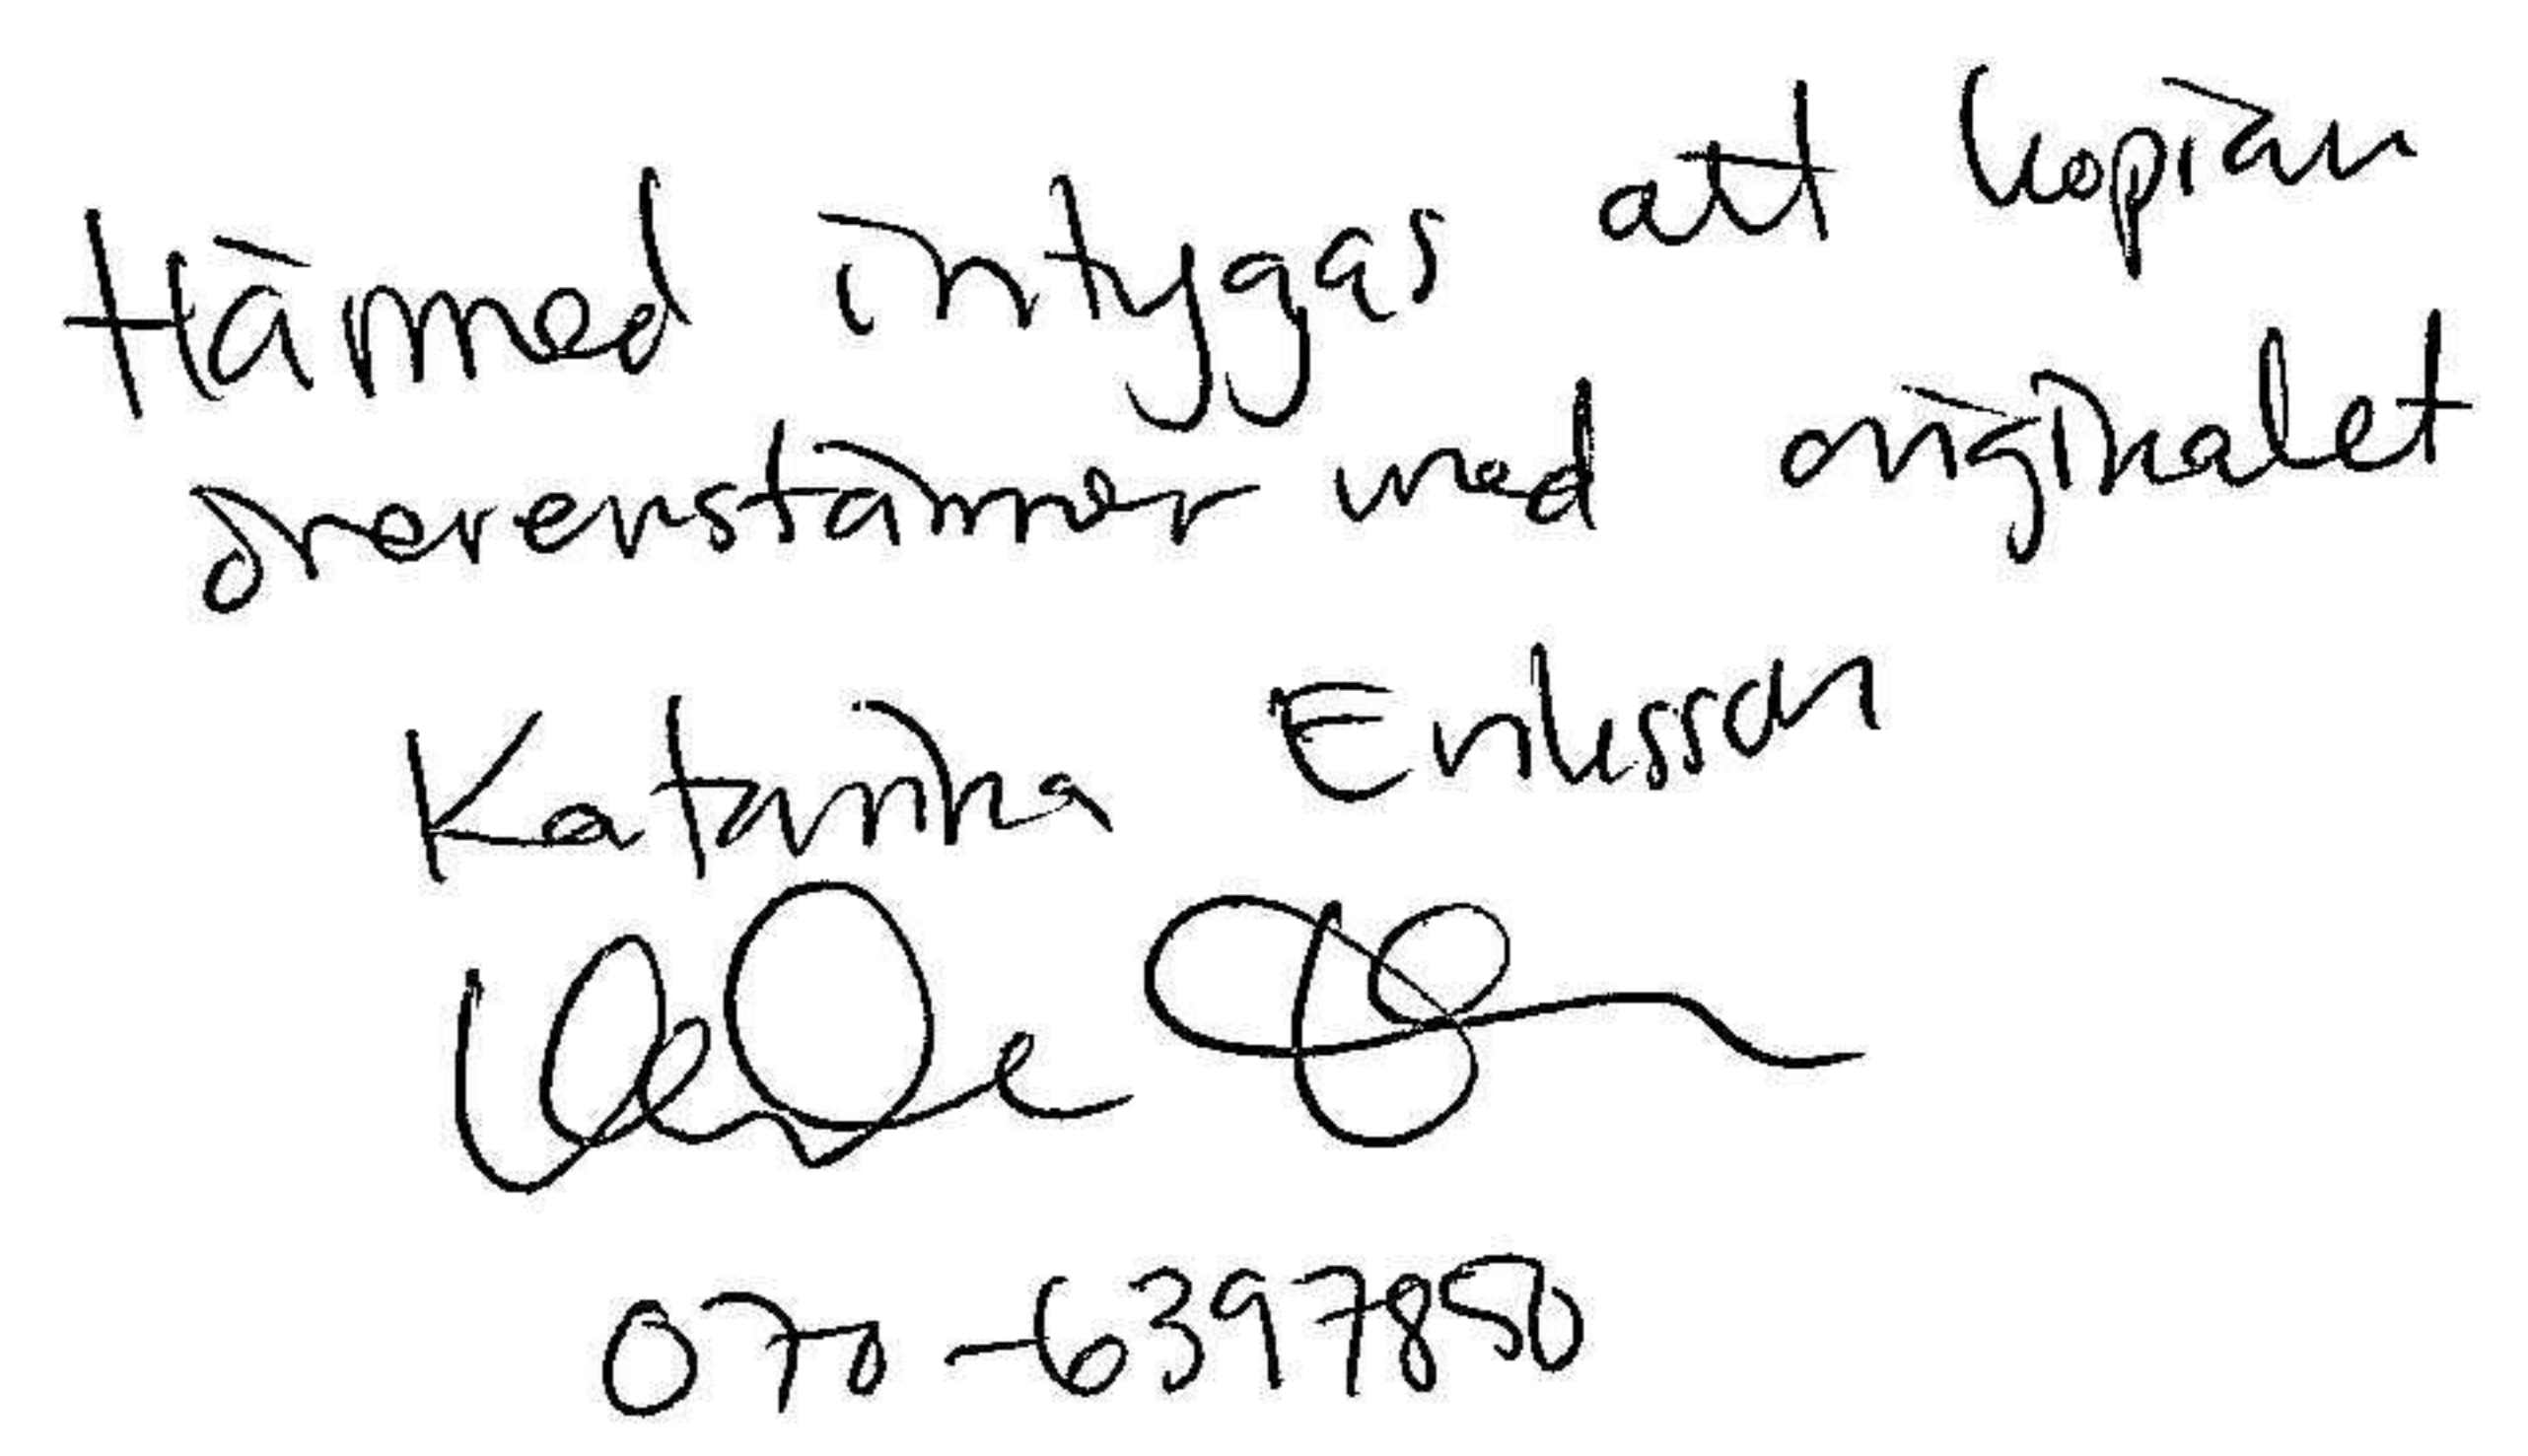 Härmed intygas att kopian
överenstämmer med originalet
Katarina Eriksson
070-6397850